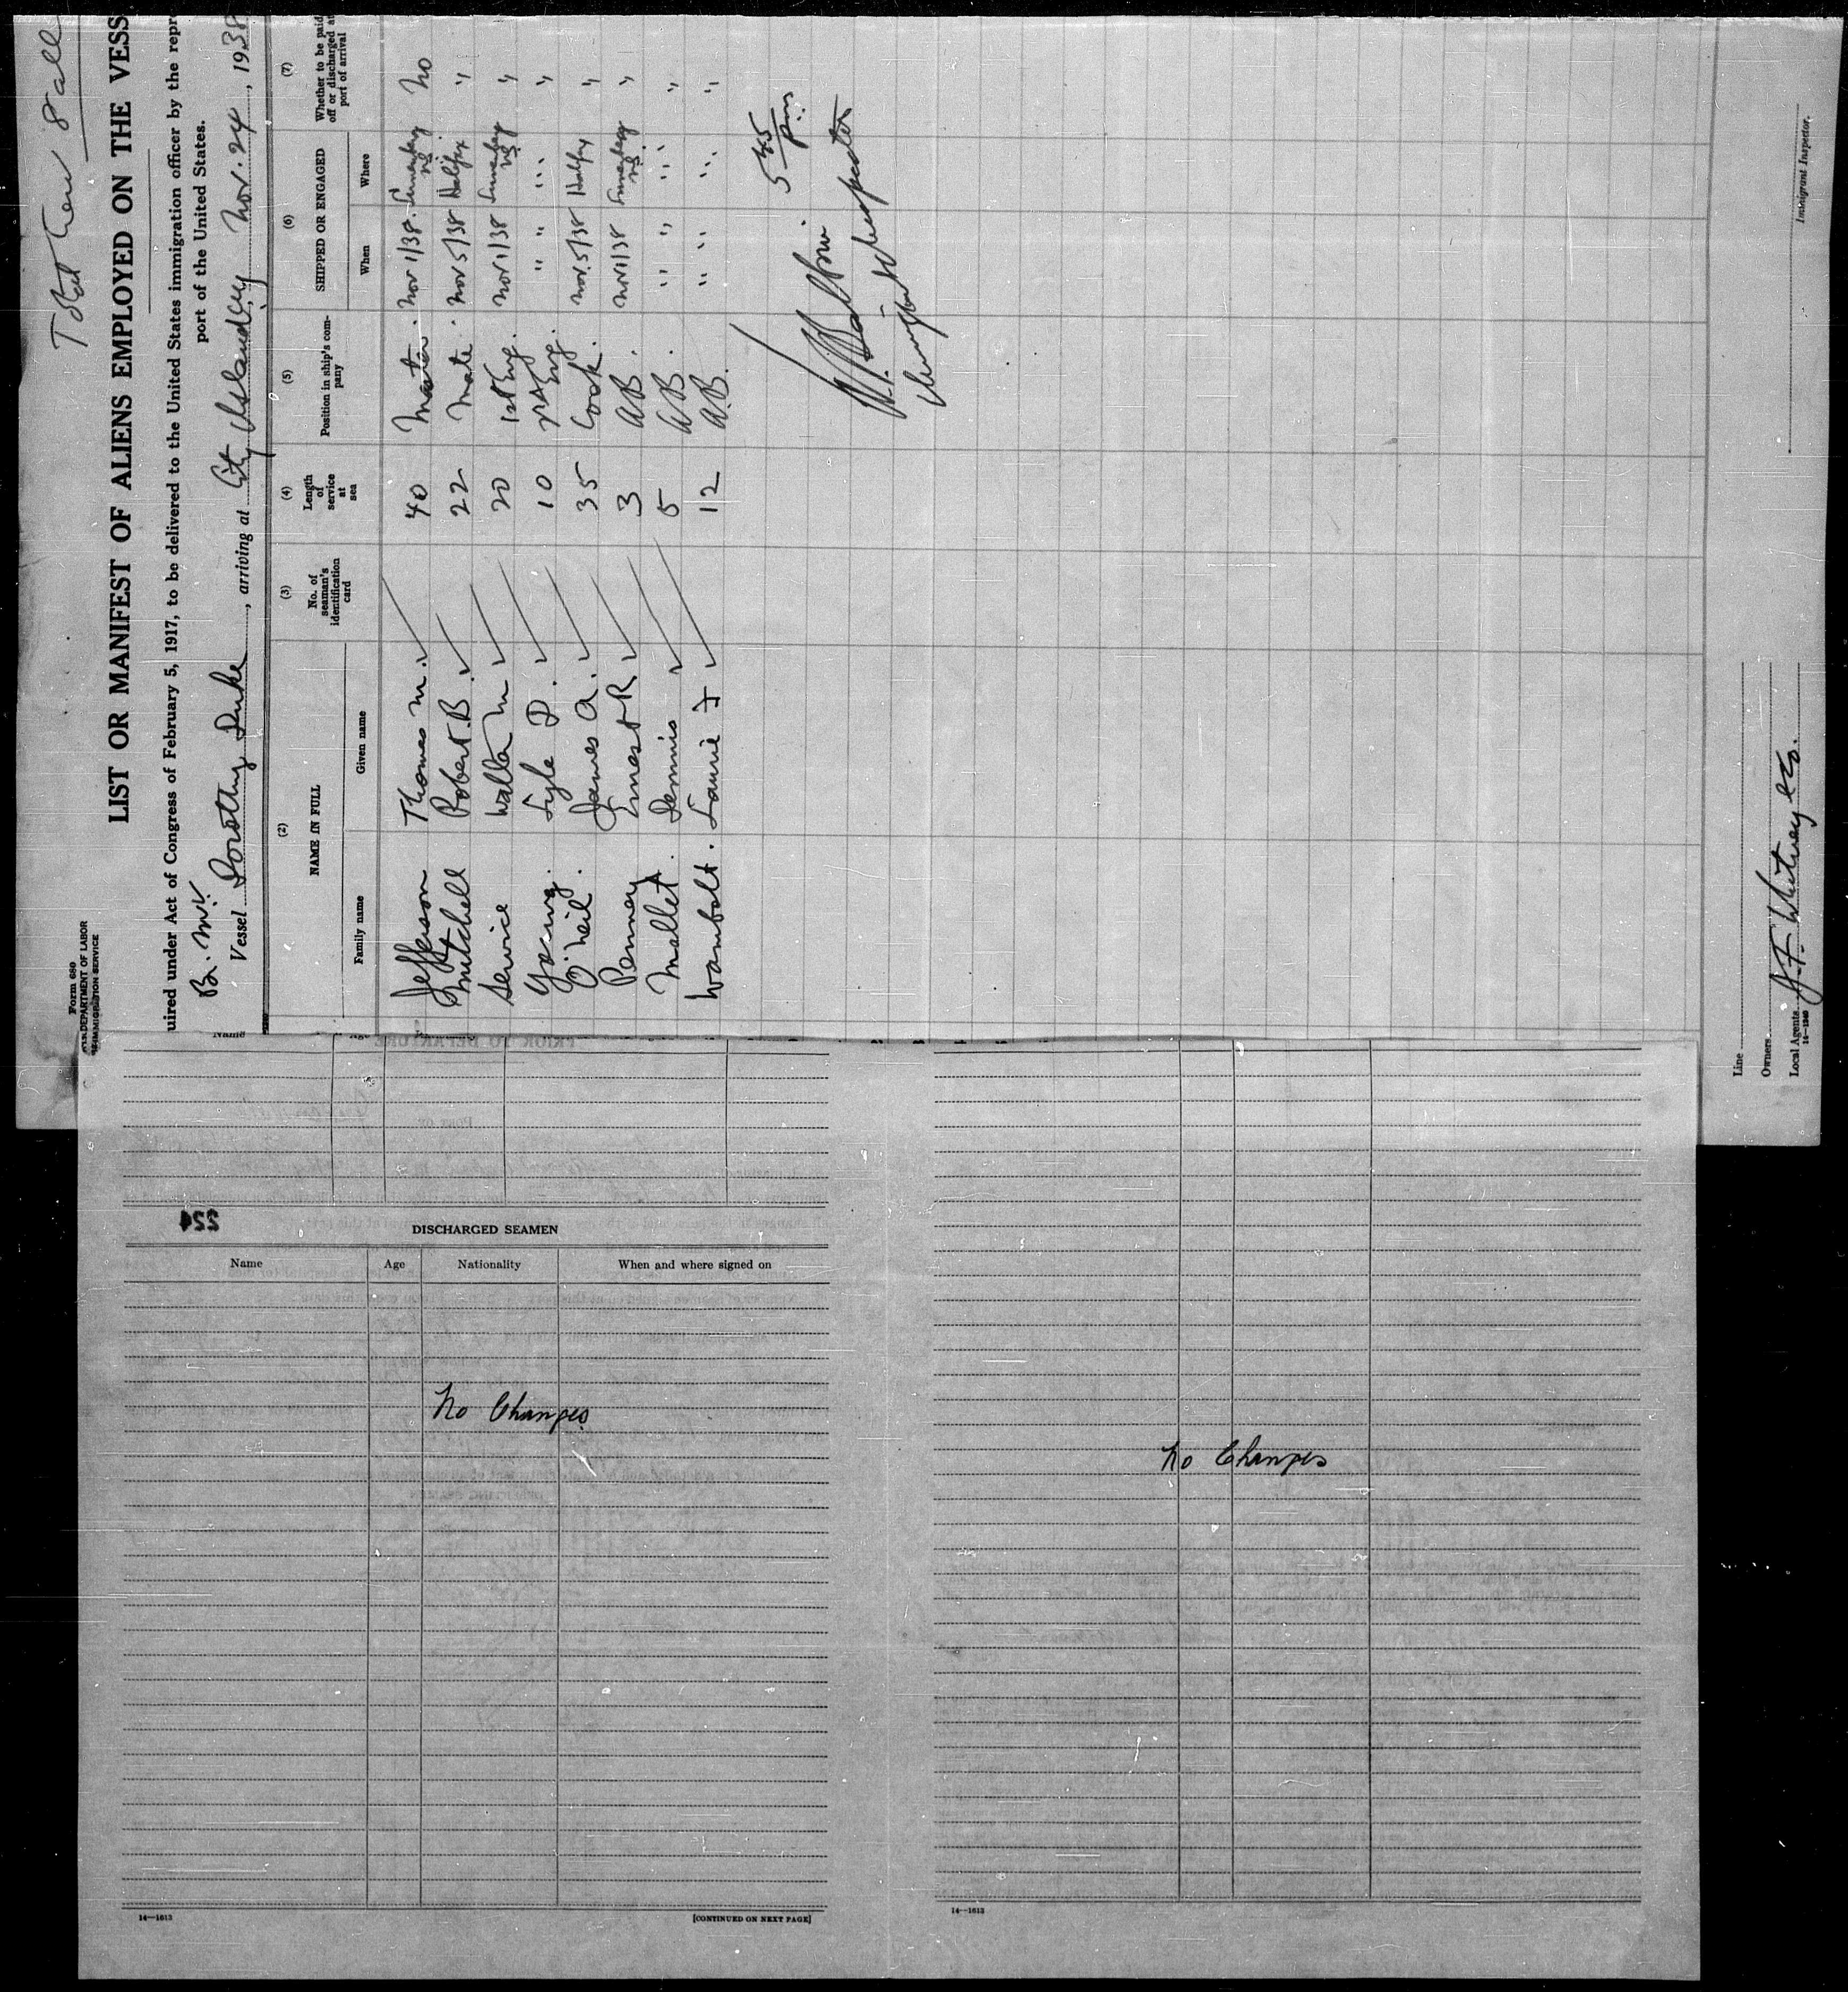 Total Crew 8 all
Form 680
U.S. DEPARTMENT OF LABOR
IMMIGRATION SERVICE
LIST OR MANIFEST OF ALIENS EMPLOYED ON THE VESS
uired under Act of Congress of February 5, 1917, to be delivered to the United States immigration officer by the repr
port of the United States.
Br. M.V.
Vessel Dorothy Duke, arriving at City Island, NY Nov. 24, 1938
(2) (3) (4) (5) (6) (7)
NAME IN FULL No. of seaman's identification card Length of service at sea Position in ship's company SHIPPED OR ENGAGED Whether to be paid off or discharged at port of arrival
Family name Given name When Where
Jefferson Thomas M. 40 Master. Nov 1/38. NS No
Mitchell Robert B. 22 Mate. Nov 5/38 Halifax "
Service Walter M 20 1st Eng. Nov 1/38 NS "
Young. Lyle D. 10 2nd Eng. " " " "
O'Neil. James A. 35 Cook. Nov. 5/38 Halifax "
Penney Ernest R 3 A.B. Nov 1/38 NS "
Mallet. Dennis 5 A.B. " " " "
Wambolt. Laurie F 12 A.B. " " " "
5 45 pm
Immigrant Inspector.
Line
Owners
Local Agents J.F. Whitney & Co.
14—1240
Name Age
PRIOR TO DEPARTURE
PORT OF
224
DISCHARGED SEAMEN
Name Age Nationality When and where signed on
No Changes
14—1613 [CONTINUED ON NEXT PAGE]
No Changes
14—1613